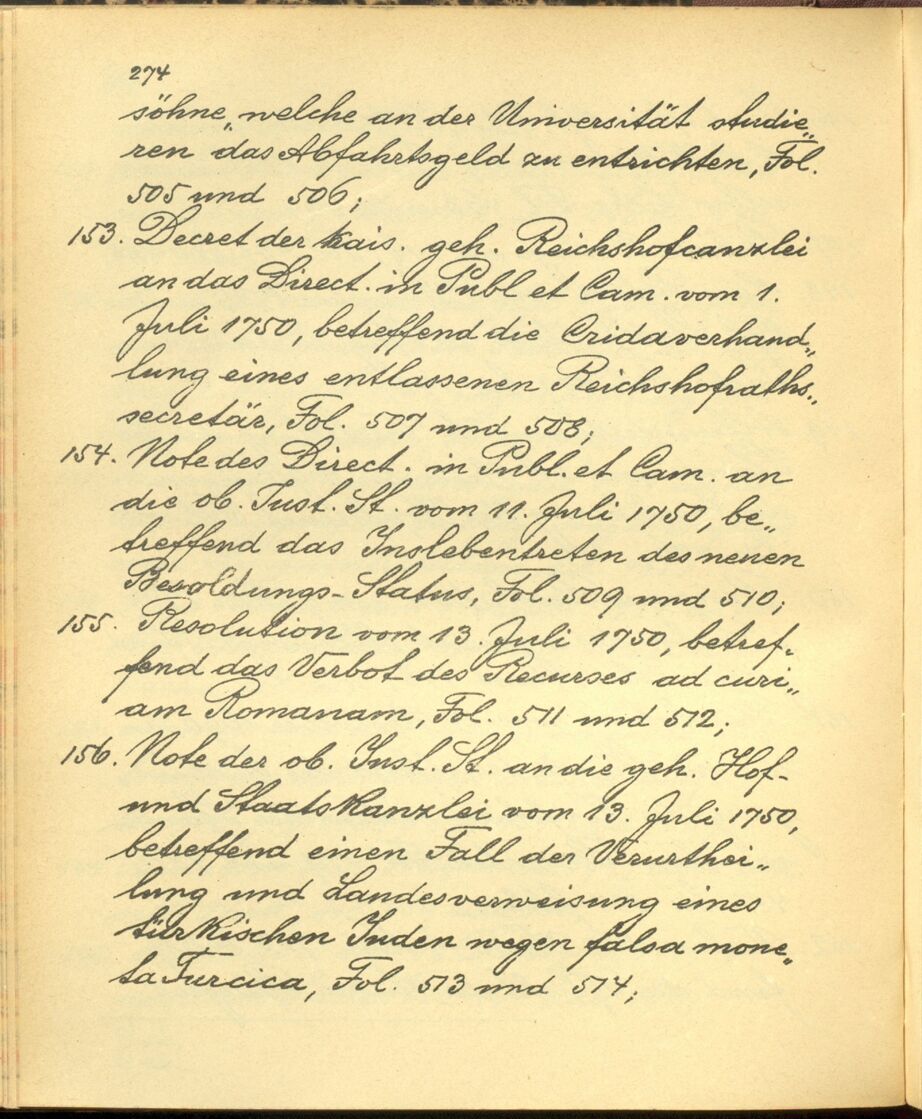 274
söhne, welche an der Universität studie„
ren das Abfahrtsgeld zu entrichten, Fol.
505 und 506;
153. Decret der kais. geh. Reichshofcanzlei
an das Direct. in Publ et Cam. vom 1.
Juli 1750, betreffend die Cridaverhand„
lung eines entlassenen Reichshofraths„
secretär, Fol. 507 und 508;
154. Note des Direct. in Publ. et Cam. an
die ob. Just. St. vom 11. Juli 1750, be„
treffend das Inslebentreten des neuen
Besoldungs-Status, Fol. 509 und 510;
155. Resolution vom 13. Juli 1750, betref„
fend das Verbot des Recurses ad curi„
am Romanam, Fol. 511 und 512;
156. Note der ob. Just. St. an die geh. Hof-
und Staatskanzlei vom 13. Juli 1750,
betreffend einen Fall der Verurthei„
lung und Landesverweisung eines
türkischen Juden wegen falsa mone„
ta Turcica, Fol. 513 und 514;